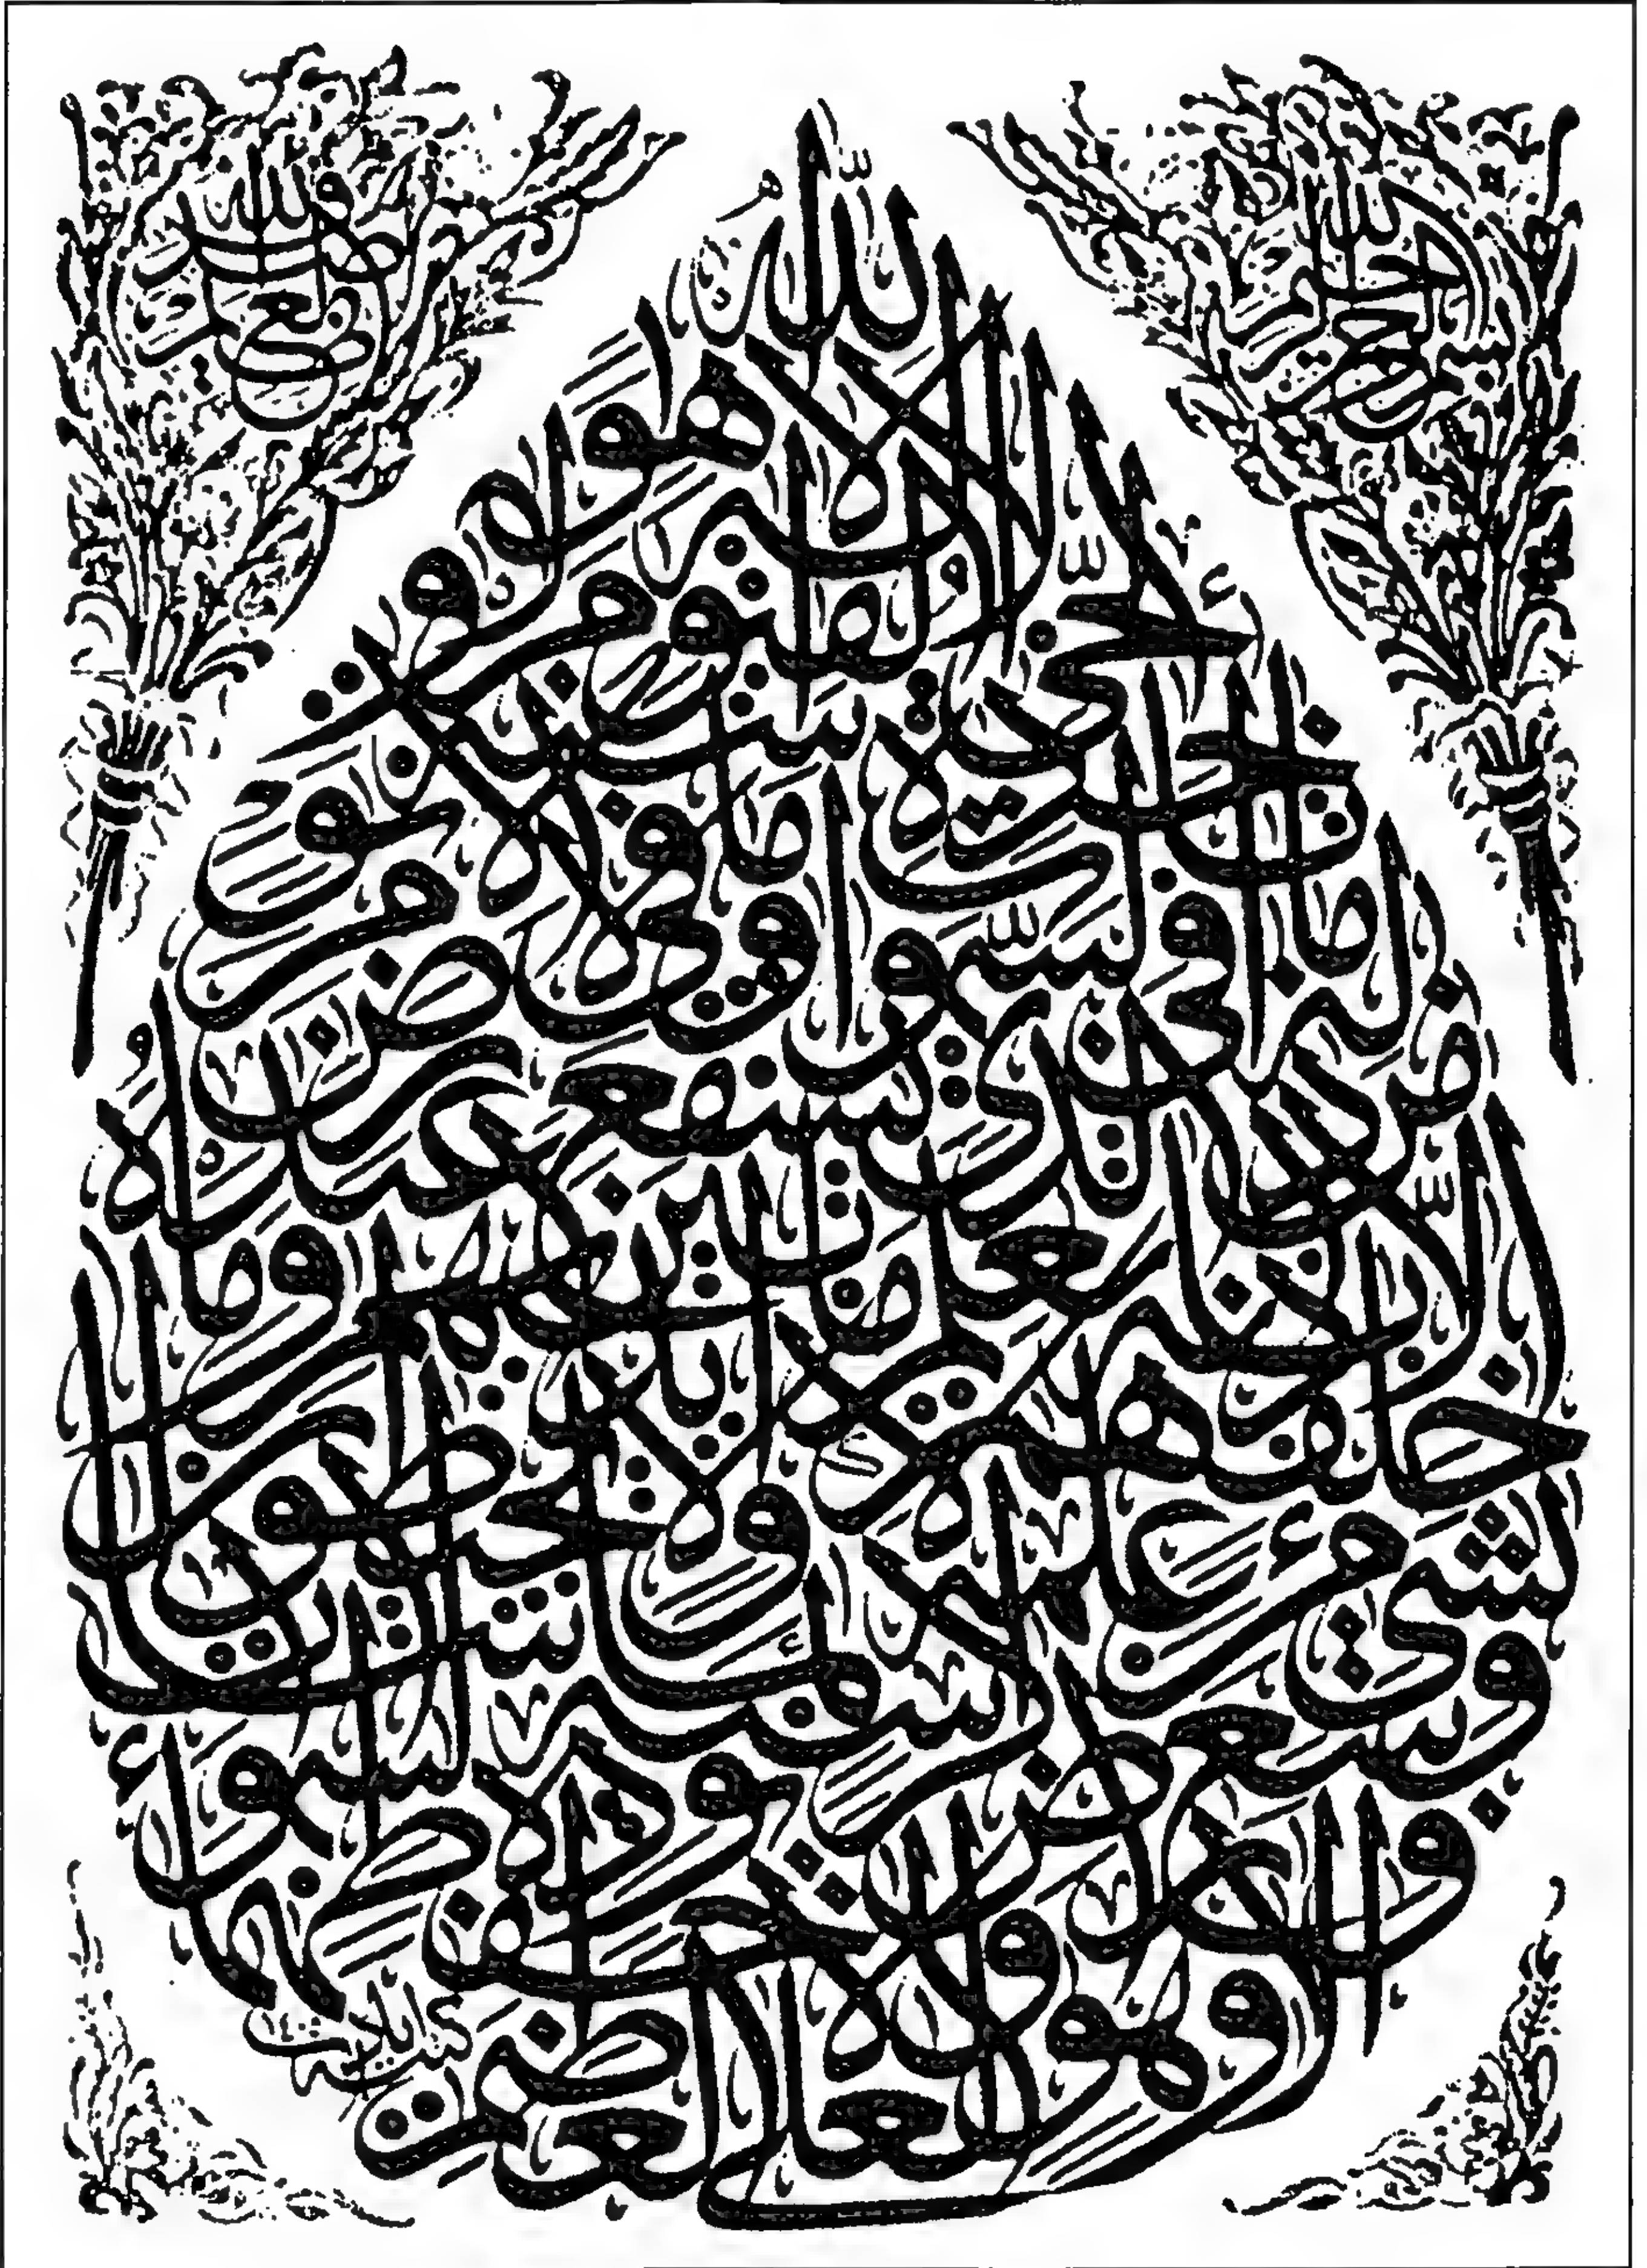 بسم الله الرحمن الرحيم
الله لا إله إلا هو
الحي القيوم
لا تأخذه سنة ولا نوم
له ما في السموات وما في الأرض
من ذا الذي يشفع عنده إلا بإذنه
يعلم ما بين أيديهم وما خلفهم
ولا يحيطون بشيء من علمه إلا بما شاء
وسع كرسيه السموات والأرض
ولا يؤده حفظهما
وهو العلي العظيم